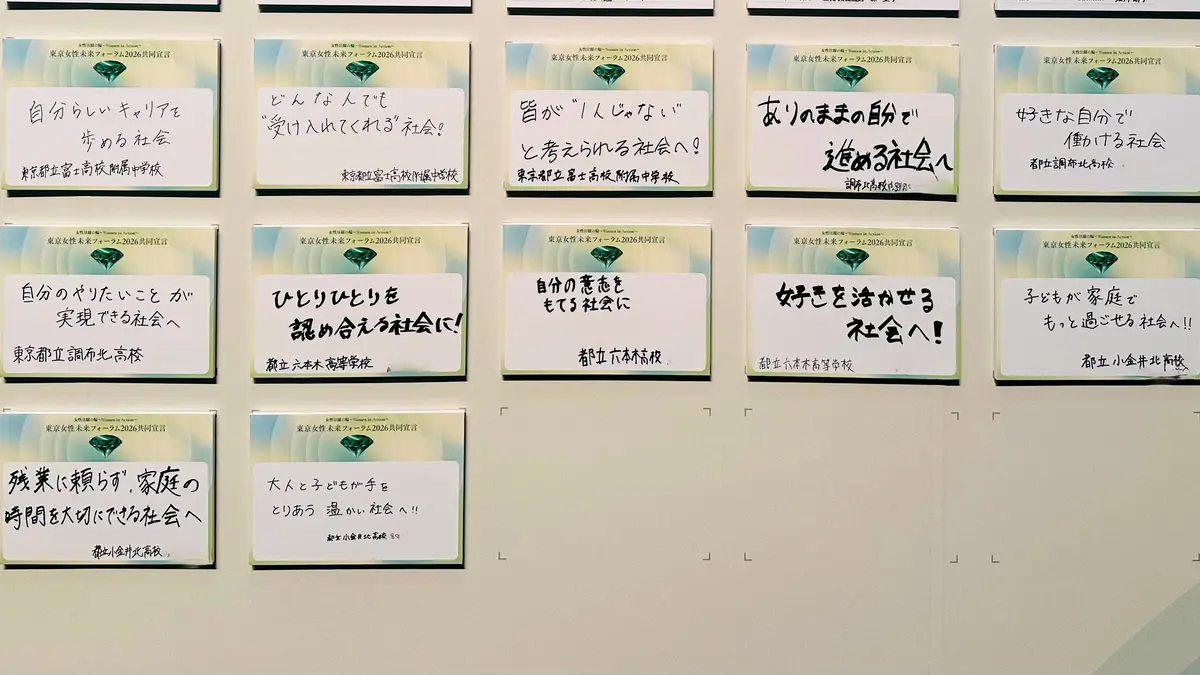 女性活躍の輪~Women in Action~
東京女性未来フォーラム2026共同宣言
自分らしいキャリアを
歩める社会
東京都立富士高校附属中学校
女性活躍の輪~Women in Action~
東京女性未来フォーラム2026共同宣言
どんな人でも
"受け入れてくれる"社会!
東京都立富士高校附属中学校
女性活躍の輪~Women in Action~
東京女性未来フォーラム2026共同宣言
皆が"1人じゃない"
と考えられる社会へ!
東京都立富士高校附属中学校
女性活躍の輪~Women in Action~
東京女性未来フォーラム2026共同宣言
ありのままの自分で
進める社会へ
調布北高校
女性活躍の輪~Women in Action~
東京女性未来フォーラム2026共同宣言
好きな自分で
働ける社会
都立調布北高校
女性活躍の輪~Women in Action~
東京女性未来フォーラム2026共同宣言
自分のやりたいことが
実現できる社会へ
東京都立調布北高校
女性活躍の輪~Women in Action~
東京女性未来フォーラム2026共同宣言
ひとりひとりを
認め合える社会に!
都立六本木高等学校
女性活躍の輪~Women in Action~
東京女性未来フォーラム2026共同宣言
自分の意志を
もてる社会に
都立六本木高校
女性活躍の輪~Women in Action~
東京女性未来フォーラム2026共同宣言
好きを活かせる
社会へ!
都立六本木高等学校
女性活躍の輪~Women in Action~
東京女性未来フォーラム2026共同宣言
子どもが家庭で
もっと過ごせる社会へ!!
都立小金井北高校
女性活躍の輪~Women in Action~
東京女性未来フォーラム2026共同宣言
残業に頼らず、家庭の
時間を大切にできる社会へ
都立小金井北高校
女性活躍の輪~Women in Action~
東京女性未来フォーラム2026共同宣言
大人と子どもが手を
とりあう 温かい社会へ!!
都立小金井北高校